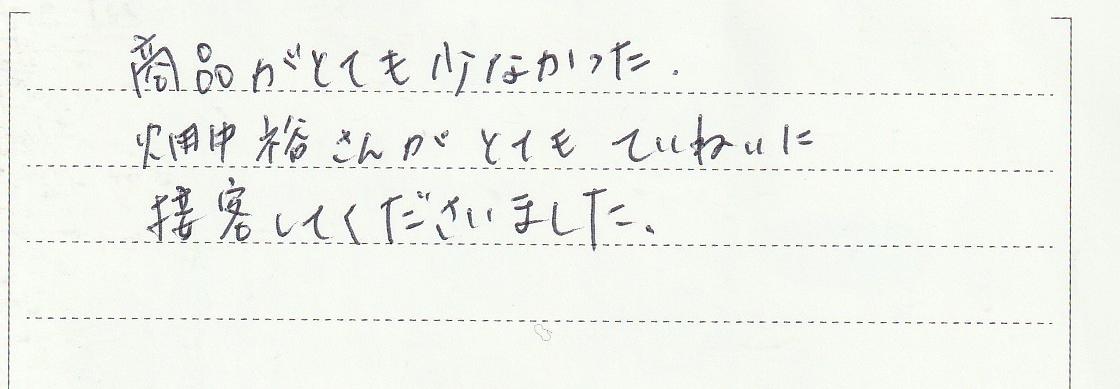 商品がとても少なかった.
畑中裕さんが とても ていねいに
接客してくださいました.